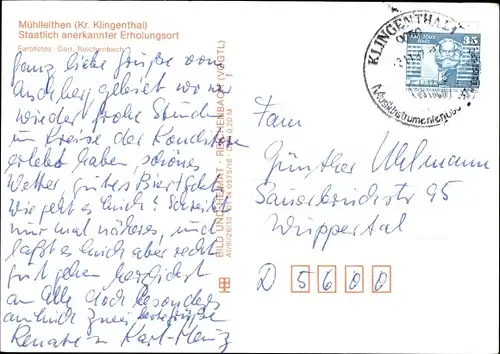 Mühlleithen (Kr. Klingenthal)
Staatlich anerkannter Erholungsort
Farbfotos: Darr, Reichenbach
Ganz liebe Grüße vom
Aschberg gebiet wo wir
wieder frohe Stunden
im Kreise der
erlebt haben, schönes
Wetter, gutes Bier!
Wie geht es Euch? Schreibt
mir mal näheres, und
laßt es Euch aber recht
gut gehen herzlichst
an Alle doch besonders
an Euch zwei
Renate u. Karl-Heinz
BILD UND HEIMAT · REICHENBACH (VOGTL)
KLINGENTHAL
Musikinstrumenten
35
An
Günther Uhlmann
Sauerbruchstr 95
Wuppertal
D 5600